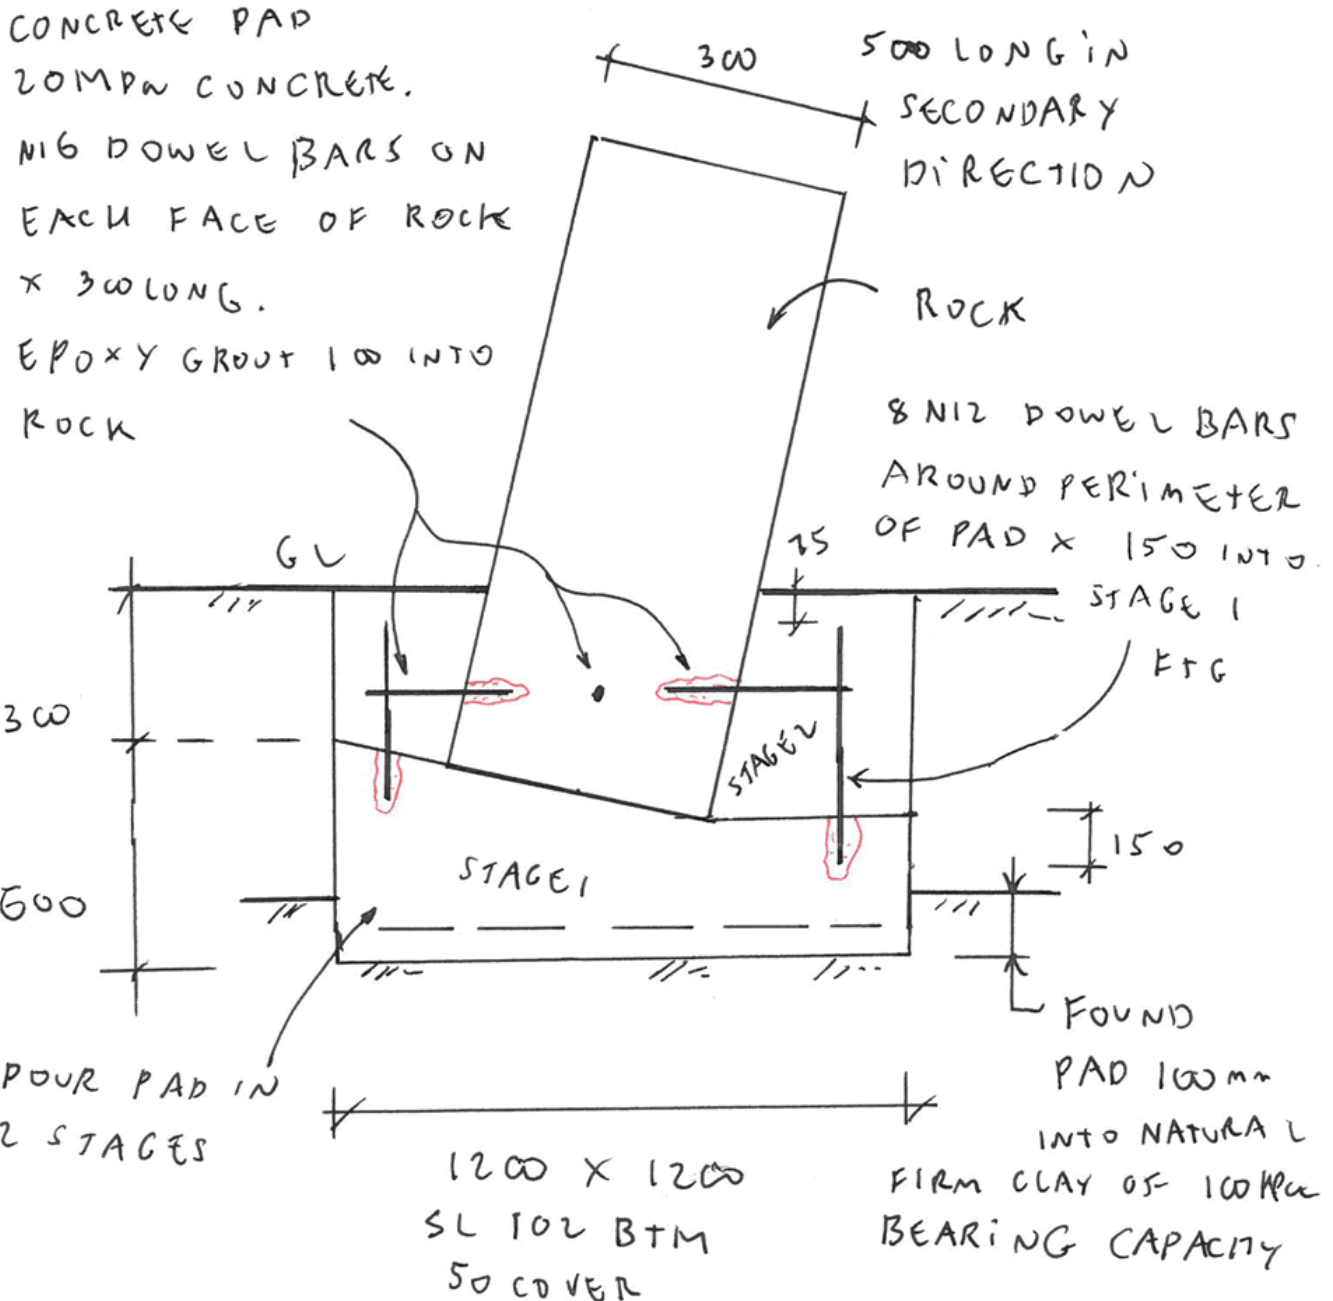 CONCRETE PAD
20MPa CONCRETE.
N16 DOWEL BARS ON
EACH FACE OF ROCK
x 300 LONG.
EPOXY GROUT 100 INTO
ROCK
300
500 LONG IN
SECONDARY
DIRECTION
ROCK
8 N12 DOWEL BARS
AROUND PERIMETER
OF PAD x 150 INTO
STAGE 1
FTG
GL
75
300
600
STAGE 2
STAGE 1
150
POUR PAD IN
2 STAGES
1200 x 1200
SL 102 BTM
50 COVER
FOUND
PAD 100mm
INTO NATURAL
FIRM CLAY OF 100 KPa
BEARING CAPACITY